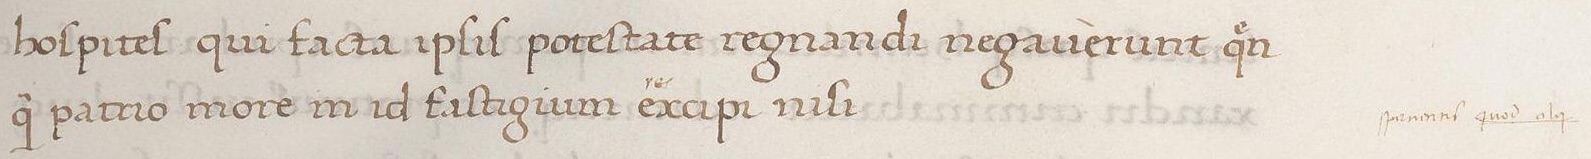 hospites qui facta ipsis potestate regnandi negauerunt qͦ̃n
q̃ patrio more in id fastigium excipi nisi
quod